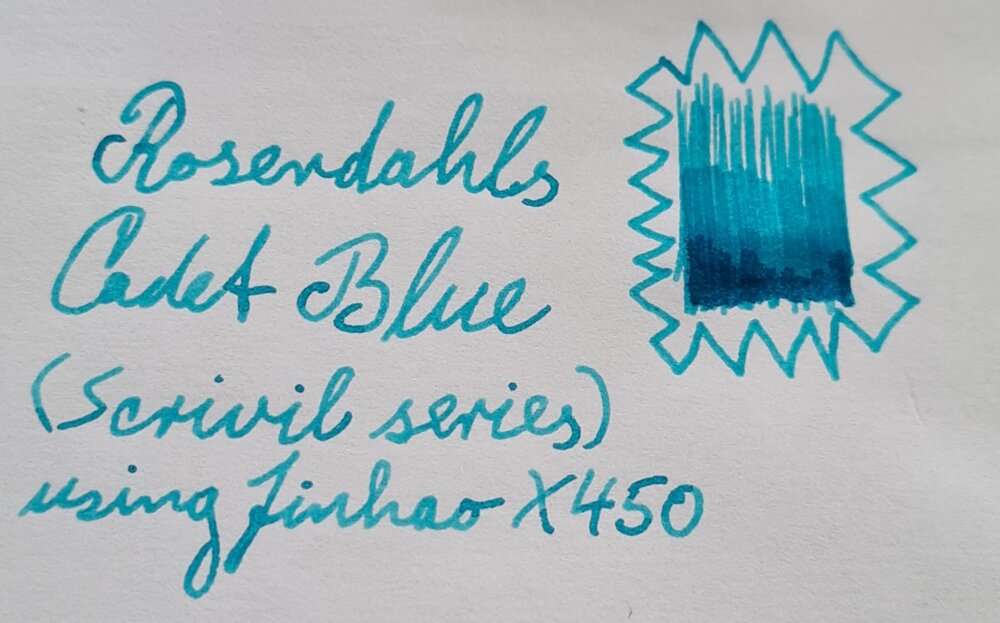 Rosendahls
Cadet Blue
(Scrivil series)
using Jinhao X450